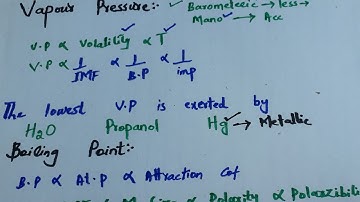 Vapour Pressure:- Barometeric → less →
Mano → Acc
V.P ∝ Volatility ∝ T
V.P ∝ 1/IMF ∝ 1/B.P ∝ 1/imp
The lowest V.P is exerted by
H2O Propanol Hg → Metallic
Boiling Point:-
B.P ∝ At.P ∝ Attraction Cof
∝ Polarity ∝ Polarizibili